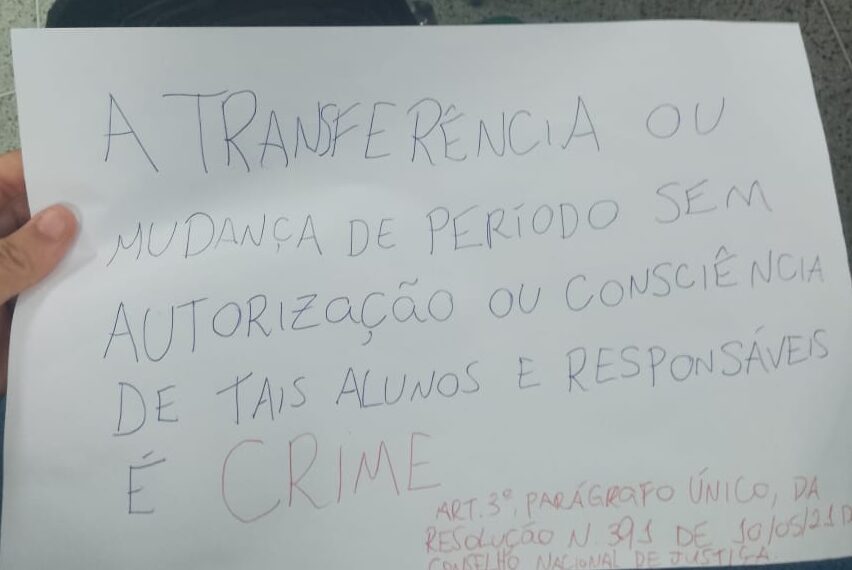 A TRANSFERÊNCIA OU
MUDANÇA DE PERÍODO SEM
AUTORIZAÇÃO OU CONSCIÊNCIA
DE TAIS ALUNOS E RESPONSÁVEIS
É CRIME
ART. 3º, PARÁGRAFO ÚNICO, DA
RESOLUÇÃO N. 391 DE 10/05/21 D
CONSELHO NACIONAL DE JUSTIÇA.